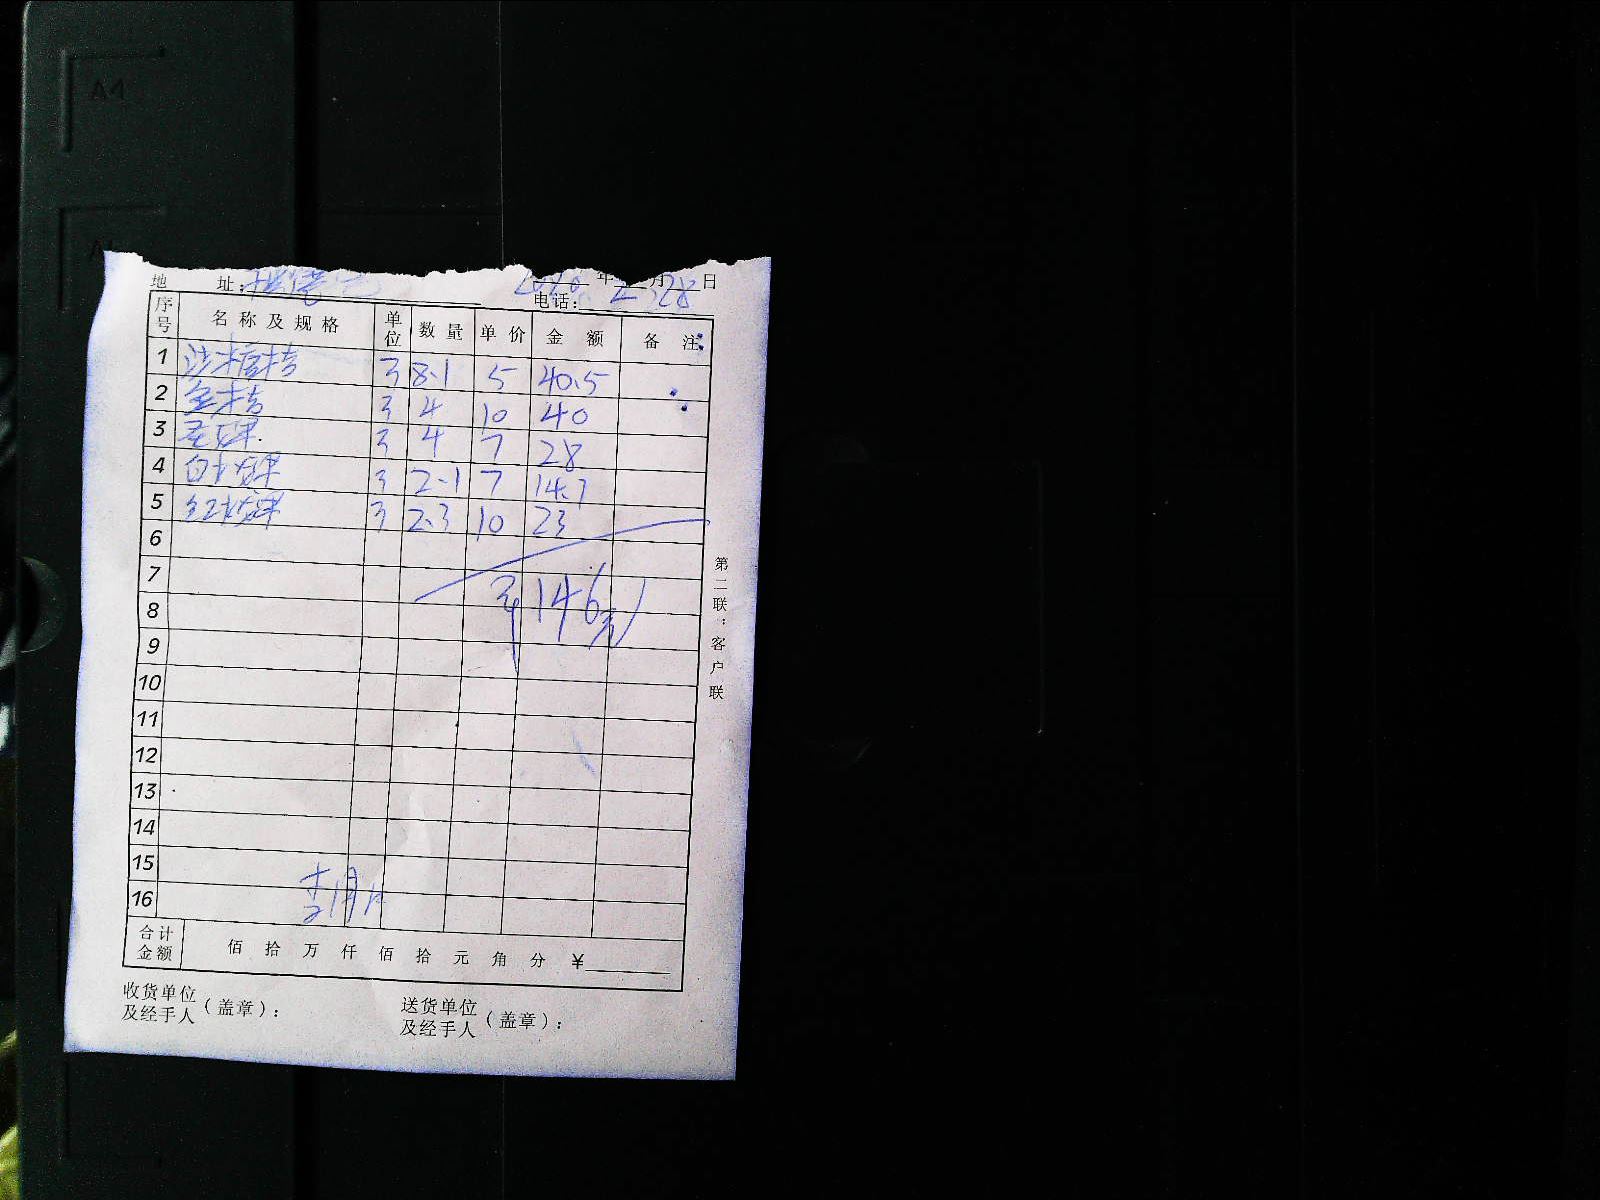 A1
地 址:
年 月 日
电话:
序号 名称及规格 单位 数量 单价 金额 备注
1 沙糖桔 8.1 5 40.5
2 金桔 4 10 40
3 4 7 28
4 2.1 7 14.7
5 2.3 10 23
6
7
146元
8
9
10
11
12
13
14
15
16
合计金额 佰 拾 万 仟 佰 拾 元 角 分 ¥
收货单位及经手人(盖章):
送货单位及经手人(盖章):
第二联:客户联